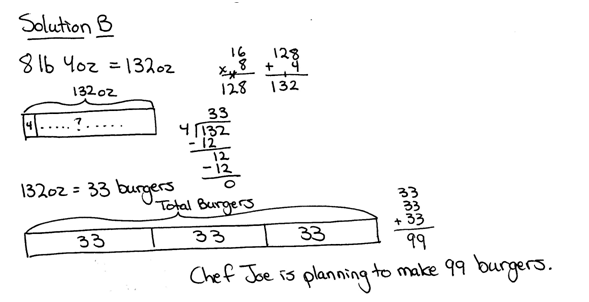 Solution B
8 lb 4oz = 132oz
16
x 8
128
128
+ 4
132
132oz
4 ..... ? .....
33
4 132
- 12
12
- 12
0
132oz = 33 burgers
Total Burgers
33 33 33
33
33
+ 33
99
Chef Joe is planning to make 99 burgers.